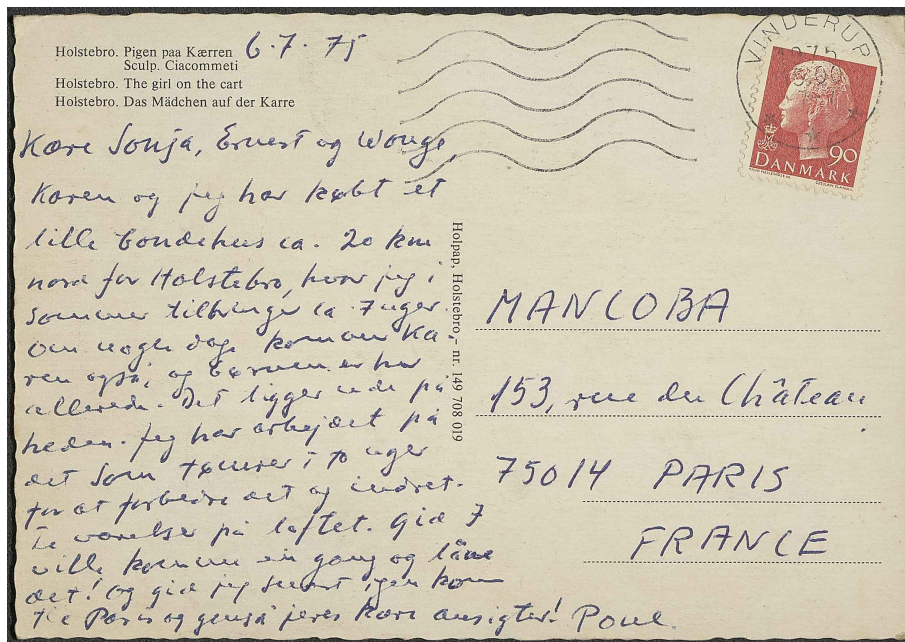 Holstebro. Pigen paa Kærren
Sculp. Ciacommeti
Holstebro. The girl on the cart
Holstebro. Das Mädchen auf der Karre
6.7.75
VINDERUP
DANMARK 90
Kære Sonja, Ernest og Wonga,
Karen og jeg har købt et
lille bondehus ca. 20 km
nord for Holstebro, hvor jeg i
sommer tilbringer ca. 7 uger.
Om nogle dage kommer Ka-
ren også, og børnene er her
allerede. Det ligger ude på
heden. Jeg har arbejdet på
det som tømrer i to uger
for at forbedre det og indret-
te værelser på loftet. Gid I
ville komme en gang og låne
det! Og gid jeg snart igen kom
til Paris og genså jeres kære ansigter! Poul.
Holpap, Holstebro,- nr. 149 708 019
MANCOBA
153, rue du Château
75014 PARIS
FRANCE